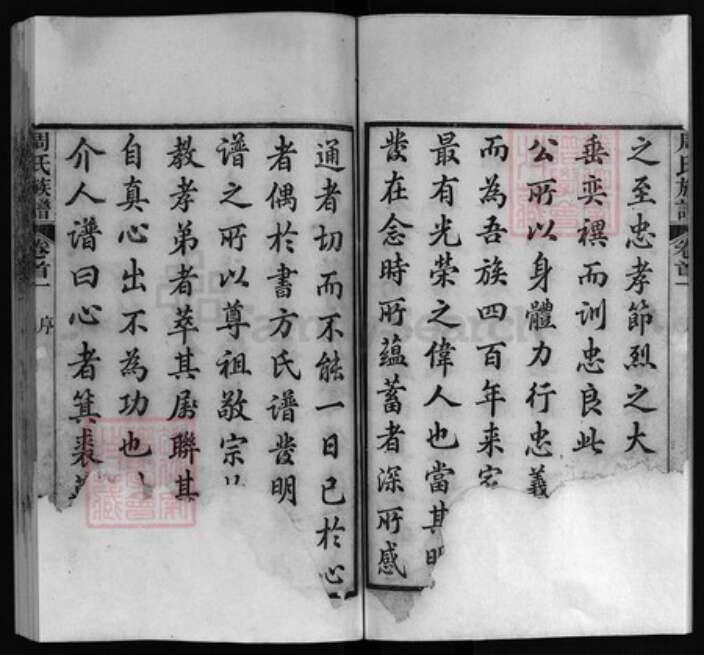 周氏族譜 卷首一
之至忠孝節烈之大
垂奕禩而訓忠良此
公所以身體力行忠義
而為吾族四百年来
最有光榮之偉人也當其
發在念時所蘊蓄者深所感
通者切而不能一日已於心
者偶於書方氏譜發明
譜之所以尊祖敬宗
教孝弟者萃其属聯其
自真心出不為功也
介人譜曰心者箕裘
周氏族譜 卷首一 序
FamilySearch